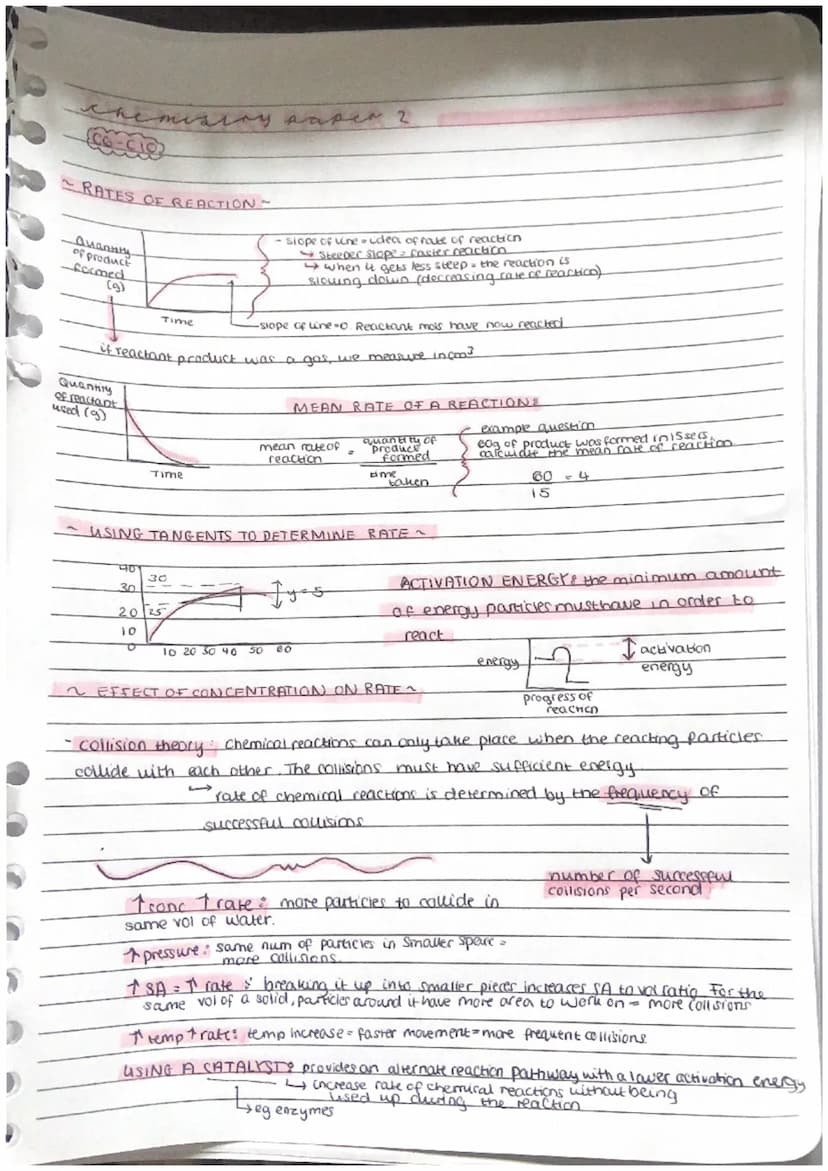 chemistry paper 2
C6-C10
~ RATES OF REACTION ~
Quantity
of product
formed
(g)
Time
- slope of line = idea of rate of reaction
↳ steeper slope = faster reaction
↳ when it gets less steep = the reaction is
slowing down (decreasing rate of reaction)
slope of line=0. Reactant mols have now reacted
if reactant product was a gas, we measure in cm³
Quantity
of reactant
used (g)
Time
MEAN RATE OF A REACTION:
mean rate of
reaction
=
quantity of
product
formed
time
taken
example question
60g of product was formed in 15 secs,
calculate the mean rate of reaction
60 = 4
15
~ USING TANGENTS TO DETERMINE RATE ~
40
30
20
10
0
30
25
y = 5
10 20 30 40 50 60
ACTIVATION ENERGY: the minimum amount
of energy particles must have in order to
react
energy
activation
energy
progress of
reaction
~ EFFECT OF CONCENTRATION ON RATE ~
- collision theory: chemical reactions can only take place when the reacting particles
collide with each other. The collisions must have sufficient energy
↳ rate of chemical reactions is determined by the frequency of
successful collisions
number of successful
collisions per second
↑ conc ↑ rate: more particles to collide in
same vol of water.
↑ pressure: same num of particles in smaller space =
more collisions.
↑ SA = ↑ rate: breaking it up into smaller pieces increases SA to vol ratio. For the
same vol of a solid, particles around it have more area to work on = more collisions
↑ temp ↑ rate: temp increase = faster movement = more frequent collisions
USING A CATALYST: provides an alternate reaction pathway with a lower activation energy
↳ increase rate of chemical reactions without being
used up during the reaction
↳ eg enzymes